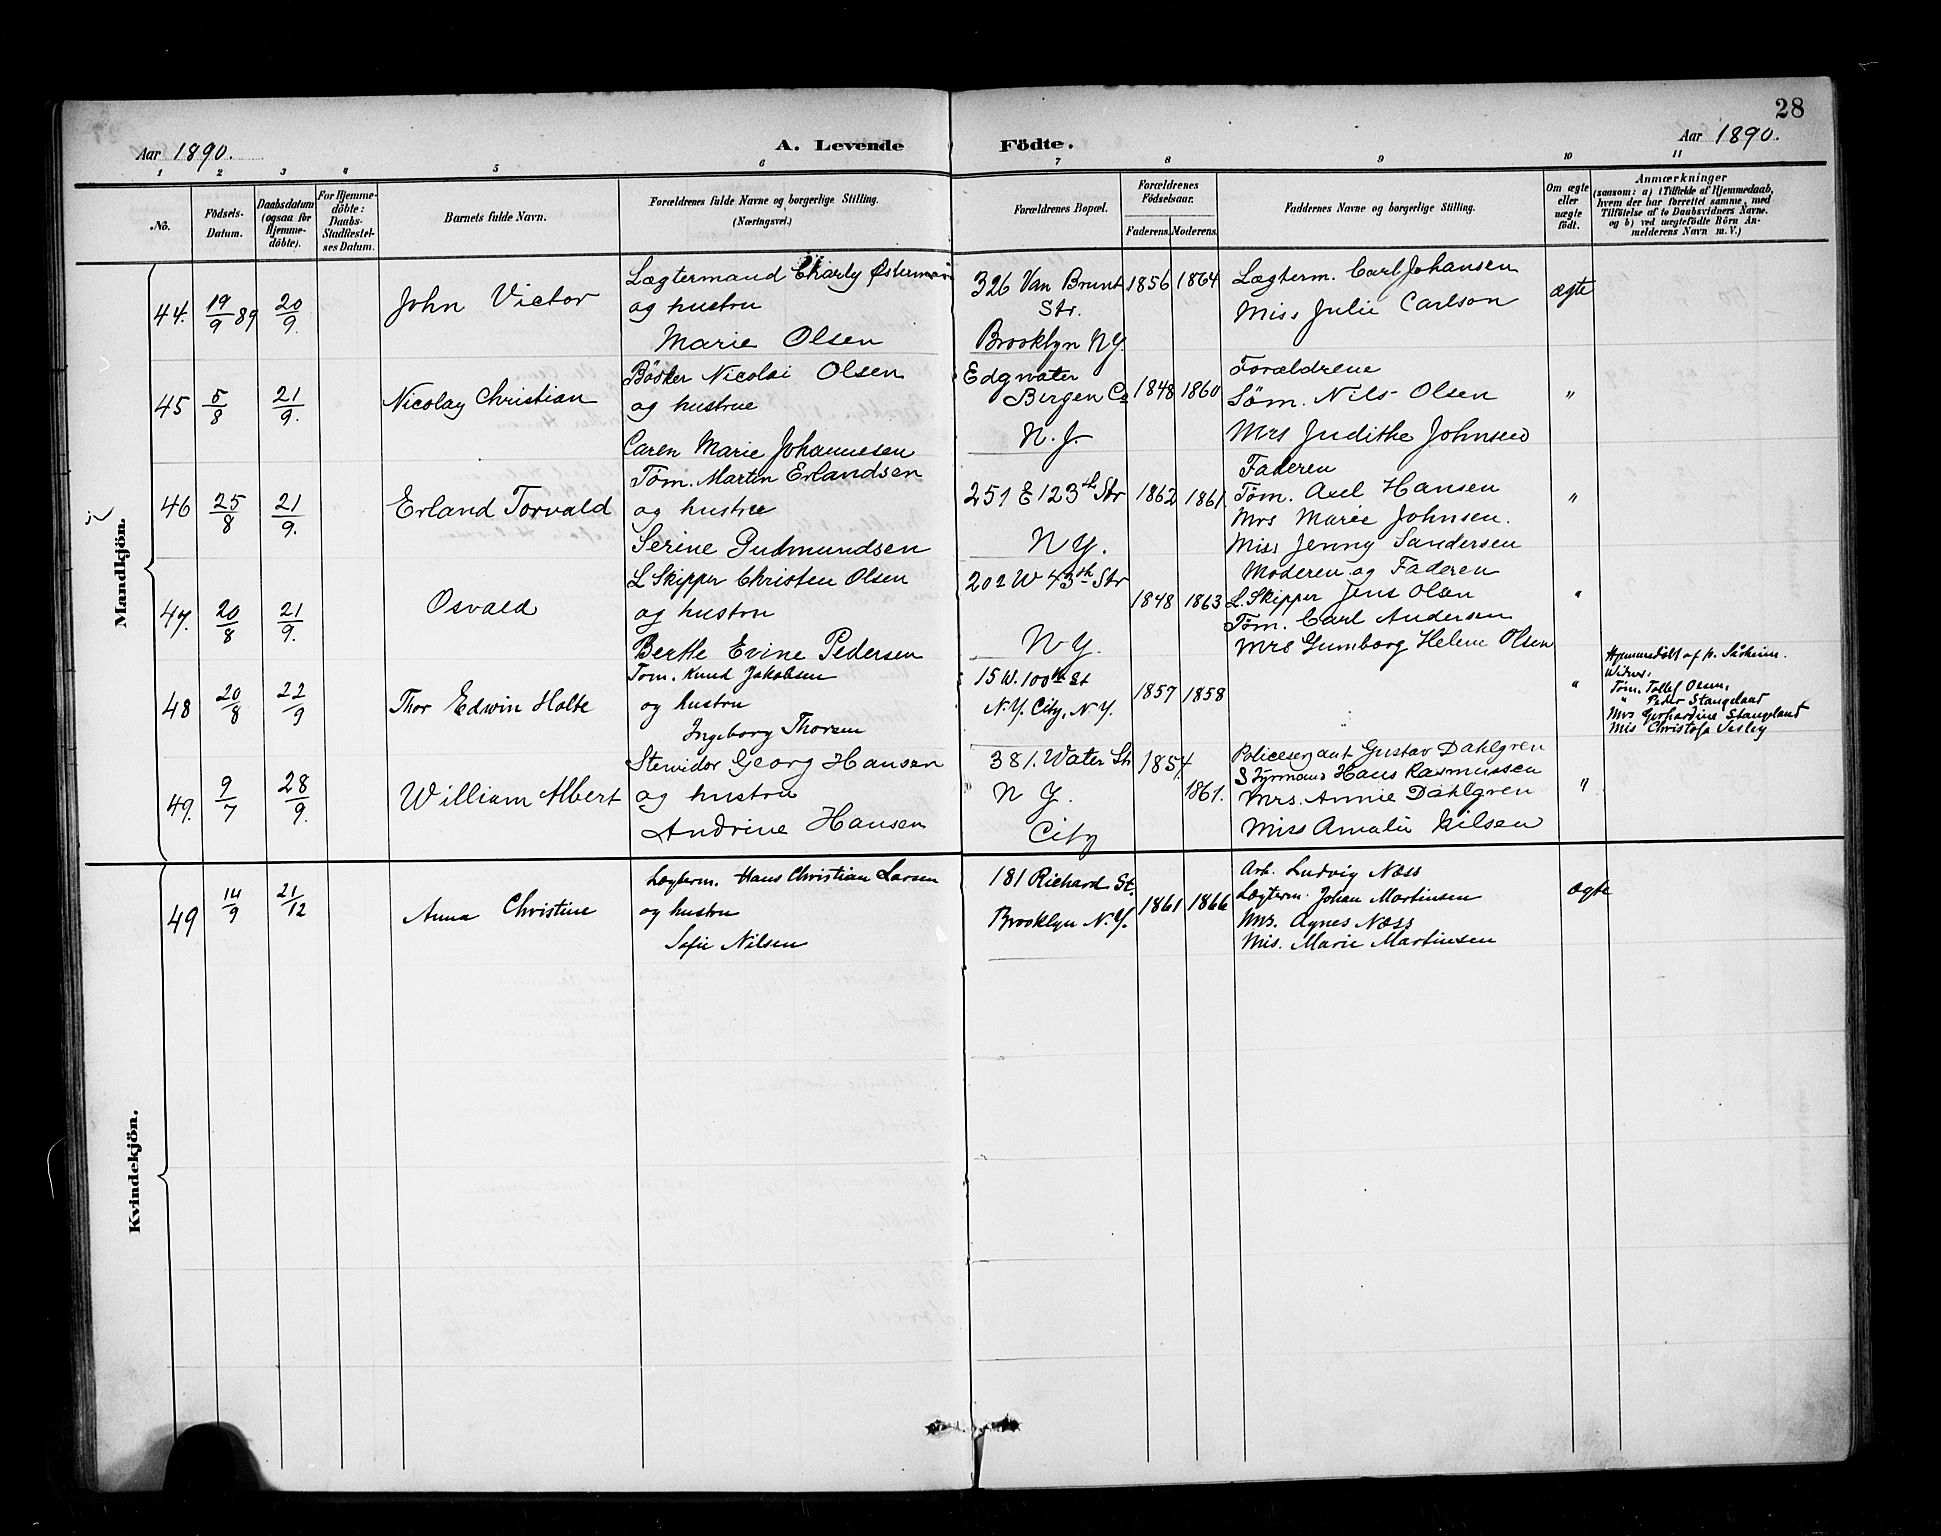 28
Aar 1890.
A. Levende Födte.
Aar 1890.
1 2 3 4 5 6 7 8 9 10 11
No.
Födsels-Datum.
Daabsdatum (ogsaa for Hjemme-döbte).
For Hjemme-döbte: Daabs-Stadfæstel-ses Datum.
Barnets fulde Navn.
Forældrenes fulde Navne og borgerlige Stilling.
(Næringsvei.)
Forældrenes Bopæl.
Forældrenes Födselsaar.
Faderens. Moderens.
Faddernes Navne og borgerlige Stilling.
Om ægte eller uægte födt.
Anmærkninger
(saasom: a) i Tilfælde af Hjemmedaab,
hvem der har forrettet samme, med
Tilföielse af to Daabsvidners Navne.
og b) ved uægtefödte Börn An-
melderens Navn m. V.)
Mandkjön.
44. 19/9 89 20/9. John Victor
Lægtermand Charly Østerman
og hustru
Marie Olsen
326 Van Brunt
Str.
Brooklyn N.Y.
1856 1864
Lægterm. Carl Johansen
Miss Julie Carlson
ægte
45 5/8 21/9. Nicolay Christian
Bösker Nicolai Olsen
og hustrue
Caren Marie Johannesen
Edgwater
Bergen Co
N. J.
1848 1860
Forældrene
Søm. Nils Olsen
Mrs Judithe Johnsen
"
46 25/8 21/9. Erland Torvald
Tøm. Martin Erlandsen
og hustrue
Serine Gudmundsen
251 E 123th Str
N Y.
1862 1861.
Faderen
Tøm. Axel Hansen
Mrs Marie Johnsen.
Miss Jenny Sandersen
"
47. 20/8 21/9. Osvald
L Skipper Christen Olsen
og hustru
Berthe Evine Pedersen
202 W 43th Str
N Y.
1848 1863
Moderen og Faderen
L. Skipper Jens Olsen
Tøm. Carl Andersen
Mrs Gumborg Helene Olsen
"
48 20/8 22/9 Thor Edwin Holte
Tøm. Knud Jakobsen
og hustru
Ingeborg Thorsen
15 W. 100th St
N.Y. City, N.Y.
1857 1858
"
Hjemmedøbt af p. Såheim.
Widner:
Tøm. Tollef Olsen,
" Peder Stangeland
Mrs Gerhardine Stangeland
Mis Christofa Vesley
49. 9/7 28/9. William Albert
Stevidor Georg Hansen
og hustru
Andrine Hansen
381. Water St
N Y.
City
1854 1861.
Policeserjant Gustav Dahlgren
Styrmand Hans Rasmussen
Mrs. Annie Dahlgren
Miss Amalie Nilsen
"
Kvindekjön.
49 14/9 21/12 Anna Christine
Lægterm. Hans Christian Larsen
og hustru
Sofie Nilsen
181 Richard St.
Brooklyn N.Y.
1861 1866
Arb. Ludvig Næss
Lægterm. Johan Martinsen
Mrs. Agnes Næss
Mis. Marie Martinsen
ægte